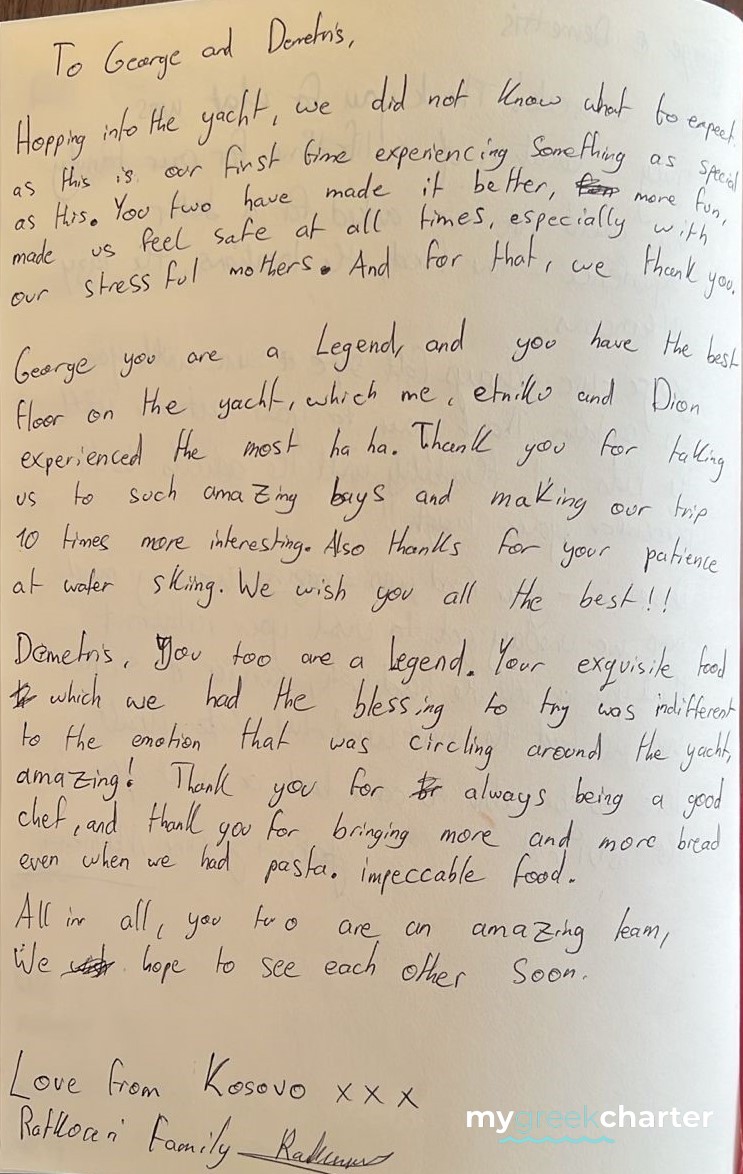 To George and Demetris,
Hopping into the yacht, we did not know what to expect
as this is our first time experiencing something as special
as this. You two have made it better, more fun,
made us feel safe at all times, especially with
our stressful mothers. And for that, we thank you.
George you are a Legend, and you have the best
floor on the yacht, which me, etniku and Dion
experienced the most ha ha. Thank you for taking
us to such amazing bays and making our trip
10 times more interesting. Also thanks for your patience
at water skiing. We wish you all the best!!
Demetris, You too are a legend. Your exquisite food
which we had the blessing to try was indifferent
to the emotion that was circling around the yacht,
amazing! Thank you for always being a good
chef, and thank you for bringing more and more bread
even when we had pasta. impeccable food.
All in all, you two are an amazing team,
We hope to see each other soon.
Love from Kosovo x x x
Family
mygreekcharter